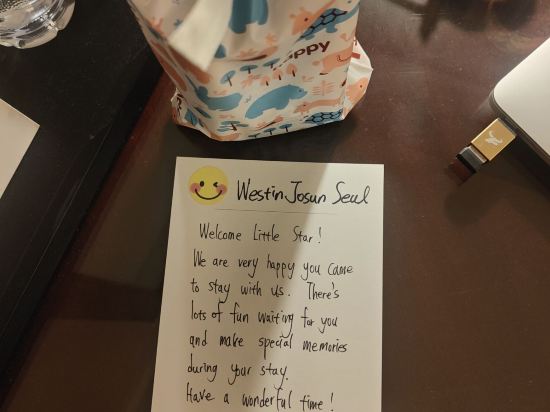 happy
Westin Josun Seoul
Welcome Little Star!
We are very happy you came
to stay with us. There's
lots of fun waiting for you
and make special memories
during your stay.
Have a wonderful time!